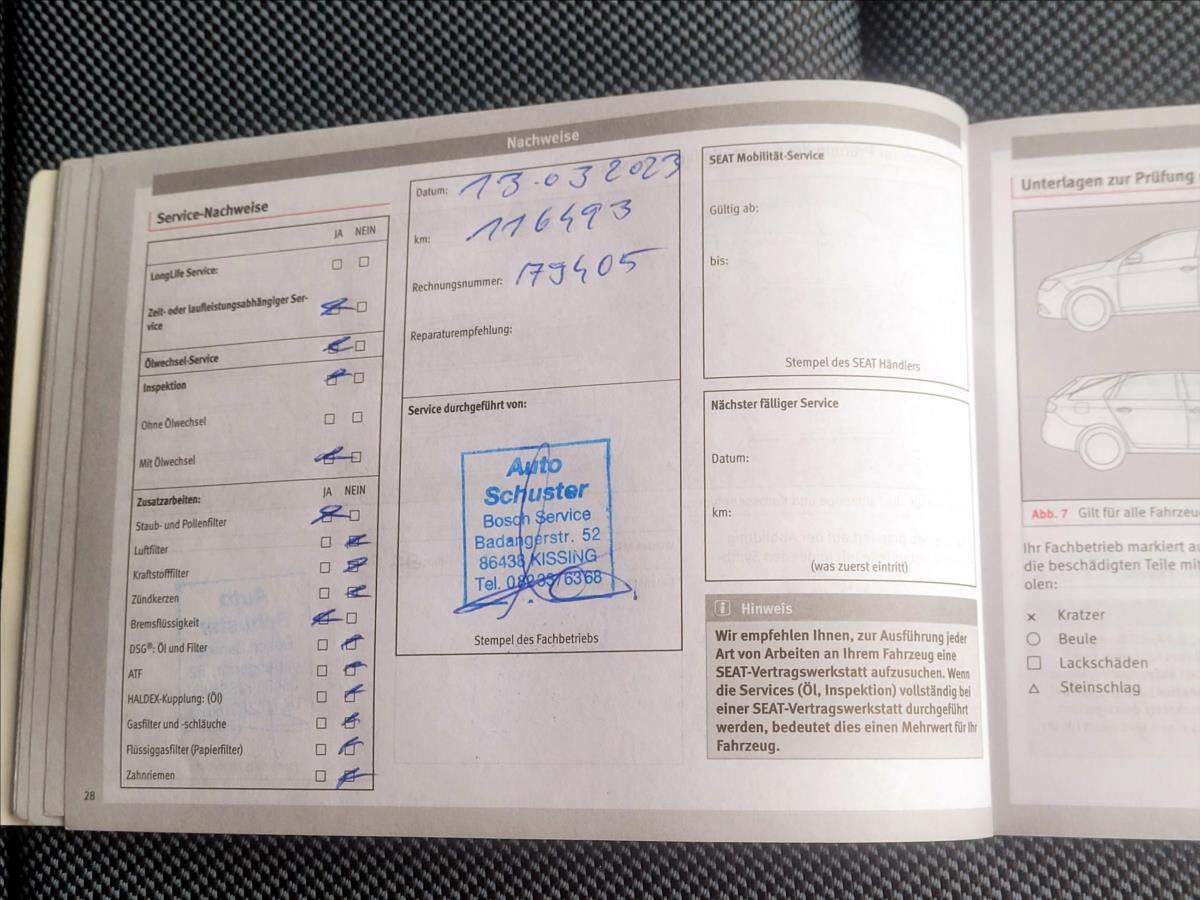 Nachweise
Service-Nachweise
JA NEIN
LongLife Service:
Zeit- oder laufleistungsabhängiger Ser-
vice
Ölwechsel-Service
Inspektion
Ohne Ölwechsel
Mit Ölwechsel
Zusatzarbeiten: JA NEIN
Staub- und Pollenfilter
Luftfilter
Kraftstofffilter
Zündkerzen
Bremsflüssigkeit
DSG®: Öl und Filter
ATF
HALDEX-Kupplung: (Öl)
Gasfilter und -schläuche
Flüssiggasfilter (Papierfilter)
Zahnriemen
28
Datum: 13.03 2023
km: 116493
Rechnungsnummer: 179405
Reparaturempfehlung:
Service durchgeführt von:
Auto
Schuster
Bosch Service
Badangerstr. 52
86438 KISSING
Tel. 08233/6368
Stempel des Fachbetriebs
SEAT Mobilität-Service
Gültig ab:
bis:
Stempel des SEAT Händlers
Nächster fälliger Service
Datum:
km:
(was zuerst eintritt)
Hinweis
Wir empfehlen Ihnen, zur Ausführung jeder
Art von Arbeiten an Ihrem Fahrzeug eine
SEAT-Vertragswerkstatt aufzusuchen. Wenn
die Services (Öl, Inspektion) vollständig bei
einer SEAT-Vertragswerkstatt durchgeführt
werden, bedeutet dies einen Mehrwert für Ihr
Fahrzeug.
Unterlagen zur Prüfung
Abb. 7 Gilt für alle Fahrzeu
Ihr Fachbetrieb markiert au
die beschädigten Teile mit
olen:
× Kratzer
○ Beule
□ Lackschäden
△ Steinschlag